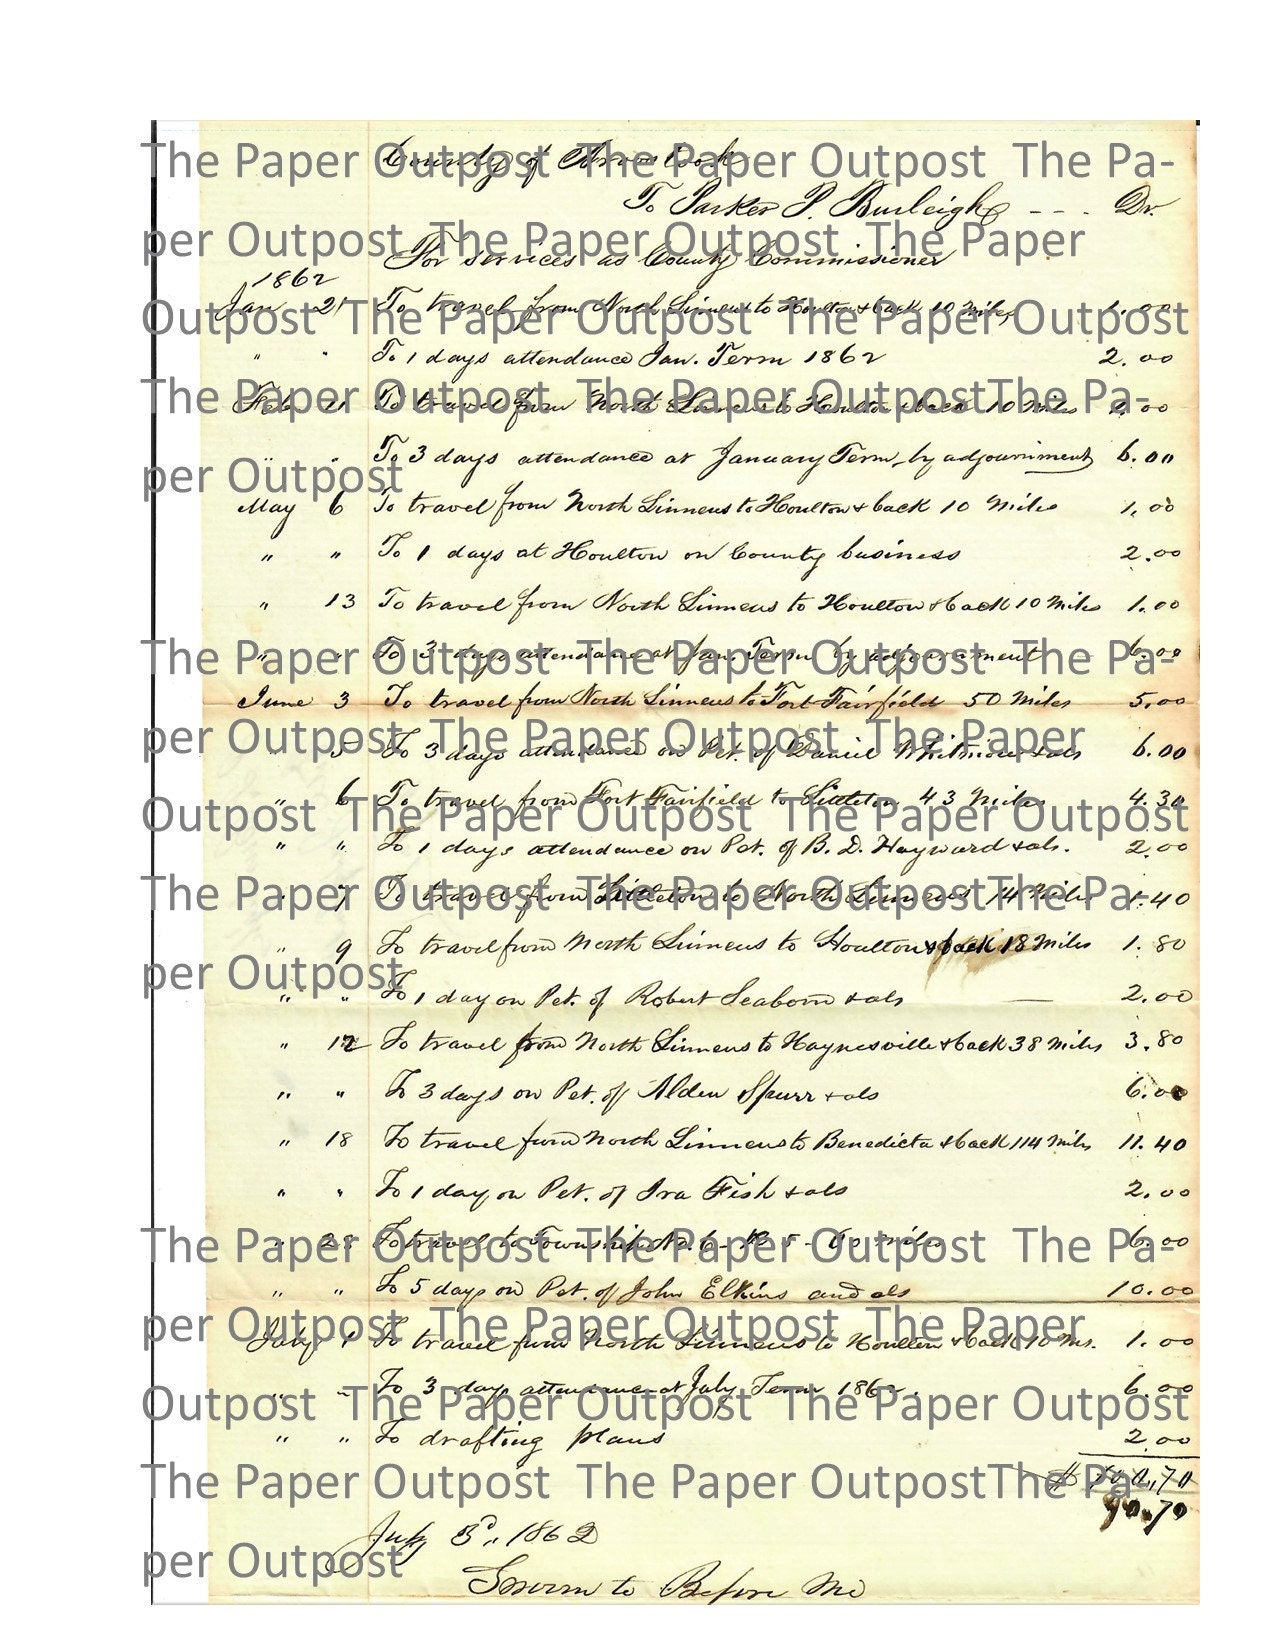 The Paper Outpost The Paper Outpost The Pa-
per Outpost The Paper Outpost The Paper
Outpost The Paper Outpost The Paper Outpost
The Paper Outpost The Paper OutpostThe Pa-
per Outpost
The Paper Outpost The Paper Outpost The Pa-
per Outpost The Paper Outpost The Paper
Outpost The Paper Outpost The Paper Outpost
The Paper Outpost The Paper OutpostThe Pa-
per Outpost
The Paper Outpost The Paper Outpost The Pa-
per Outpost The Paper Outpost The Paper
Outpost The Paper Outpost The Paper Outpost
The Paper Outpost The Paper OutpostThe Pa-
per Outpost
County of Aroostook
To Parker P. Burleigh - - - Dr.
For services as County Commissioner
1862
Jan 21 To travel from North Linneus to Houlton & back 10 Miles 1.00
" " To 1 days attendance Jan. Term 1862 2.00
Feb To travel from North Linneus to Houlton & back 10 Miles 1.00
" " To 3 days attendance at January Term, by adjournment 6.00
May 6 To travel from North Linneus to Houlton & back 10 Miles 1.00
" " To 1 days at Houlton on County business 2.00
" 13 To travel from North Linneus to Houlton & back 10 Miles 1.00
" " To 3 days attendance at Jan. Term by adjournment 6.00
June 3 To travel from North Linneus to Fort Fairfield 50 Miles 5.00
" 5 To 3 days attendance on Pet. of Daniel & als 6.00
" 6 To travel from Fort Fairfield to Littleton 43 Miles 4.30
" " To 1 days attendance on Pet. of B. D. Hayward & als. 2.00
" 7 To travel from Littleton to North Linneus 14 Miles 1.40
" 9 To travel from North Linneus to Houlton & back 18 Miles 1.80
" " To 1 day on Pet. of Robert Seaborn & als 2.00
" 12 To travel from North Linneus to Haynesville & back 38 Miles 3.80
" " To 3 days on Pet. of Alden Spurr & als 6.00
" 18 To travel from North Linneus to Benedicta & back 114 Miles 11.40
" " To 1 day on Pet. of Ira Fish & als 2.00
" 28 To travel to Township No. 6 - R 5 - 60 miles 6.00
" " To 5 days on Pet. of John Elkins and als 10.00
July 1 To travel from North Linneus to Houlton & back 10 Ms. 1.00
" " To 3 days attendance at July Term 1862. 6.00
" " To drafting plans 2.00
90.70
July 3d, 1862
Sworn to Before Me